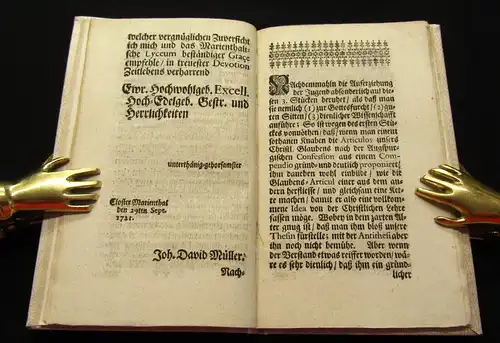 welcher vergnüglichen Zuversicht
ich mich und das Marienthali-
sche Lyceum beständiger Grace
empfehle/ in treuester Devotion
Zeitlebens verharrend
Ewr. Hochwohlgeb. Excell.
Hoch-Edelgeb. Gestr. und
Herrlichkeiten
unterthänig-gehorsamster
Closter Marienthal
den 29ten Sept.
1721.
Joh. David Müller.
Nach-
Nachdemmahln die Auferziehung
der Jugend absonderlich auf die-
sen 3. Stücken beruhet/ als daß man
sie nemlich (1) zur Gottesfurcht/ (2) zu
guten Sitten/ (3) dienlicher Wissenschafft
anführe; So ist wegen des ersten Stü-
ckes vonnöthen/ daß/ wenn man einem
sothanen Knaben die Articulos unsers
Christl. Glaubens nach der Augspur-
gischen Confession aus einem Com-
pendio gründ- und deutlich proponirt/
ihm dadurch wohl einbilde/ wie die
Glaubens-Articul einer aus dem an-
dern herfliesse/ und gleichsam eine Ket-
te machen/ damit er also eine vollkom-
mene Idea von der Christlichen Lehre
fassen möge. Wobey in dem zarten Al-
ter gnug ist/ daß man ihm bloß unsere
Thesin fürstelle; mit der Antithesi aber
ihn noch nicht bemühe. Aber wenn
der Verstand etwas reiffer worden/ wä-
re es sehr dienlich/ daß ihm ein gründ-
licher